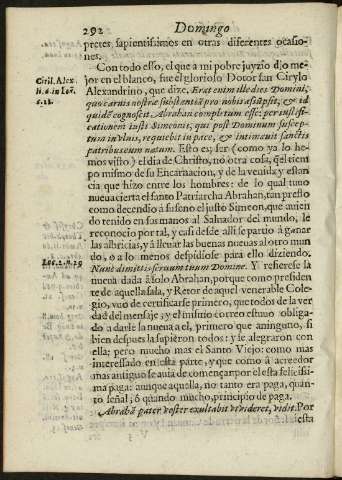 292 Domingo
pretes, sapientissimos en otras diferentes ocasio-
nes.
Con todo esso, el que a mi pobre juyzio dio me-
jor en el blanco, fue el glorioso Dotor san Cirylo
Alexandrino, que dize. Erat enim ille dies Domini,
quo carnis nostræ substantiã pro nobis assūpsit, & id
quidẽ cognoscit. Abraham completum esse: per iustifi-
cationem iusti Simeonis, qui post Dominum suscep-
tum in vlnis, requieuit in pace, & intimauit sanctis
patribus eum natum. Esto es; ser (como ya lo he-
mos visto) el dia de Christo, no otra cosa, q̃ el tiem
po mismo de su Encarnacion, y de la venida y estan
cia que hizo entre los hombres: de lo qual tuuo
nueua cierta el santo Patriarcha Abrahan, tan presto
como decendio a su seno el justo Simeon, que auien
do tenido en sus manos al Saluador del mundo, le
reconocio por tal, y casi desde alli se partio à ganar
las albricias, y à lleuar las buenas nueuas al otro mun
do, ò a lo menos despidiose para ello diziendo.
Nunc dimittis seruum tuum Domine. Y refierese la
nueua dada à solo Abrahan, porque como presiden
te de aquella sala, y Retor de aquel venerable Cole-
gio, vuo de certificarse primero, que todos de la ver
dad del mensaje; y el mismo correo estuuo obliga-
do a darle la nueua a el, primero que a ninguno, si
bien despues la supieron todos: y se alegraron con
ella; pero mucho mas el Santo Viejo: como mas
interessado en esta parte, y que como à acreedor
mas antiguo se auia de començar por el esta felicissi
ma paga: aunque aquella, no tanto era paga, quan-
to señal; ò quando mucho, principio de paga.
Abrahã pater vester exultabit vt videret, vidit. Por
esta
Ciril. Alex.
li. 6. in Ioã.
c. 11.
Luc. 2. n. 29